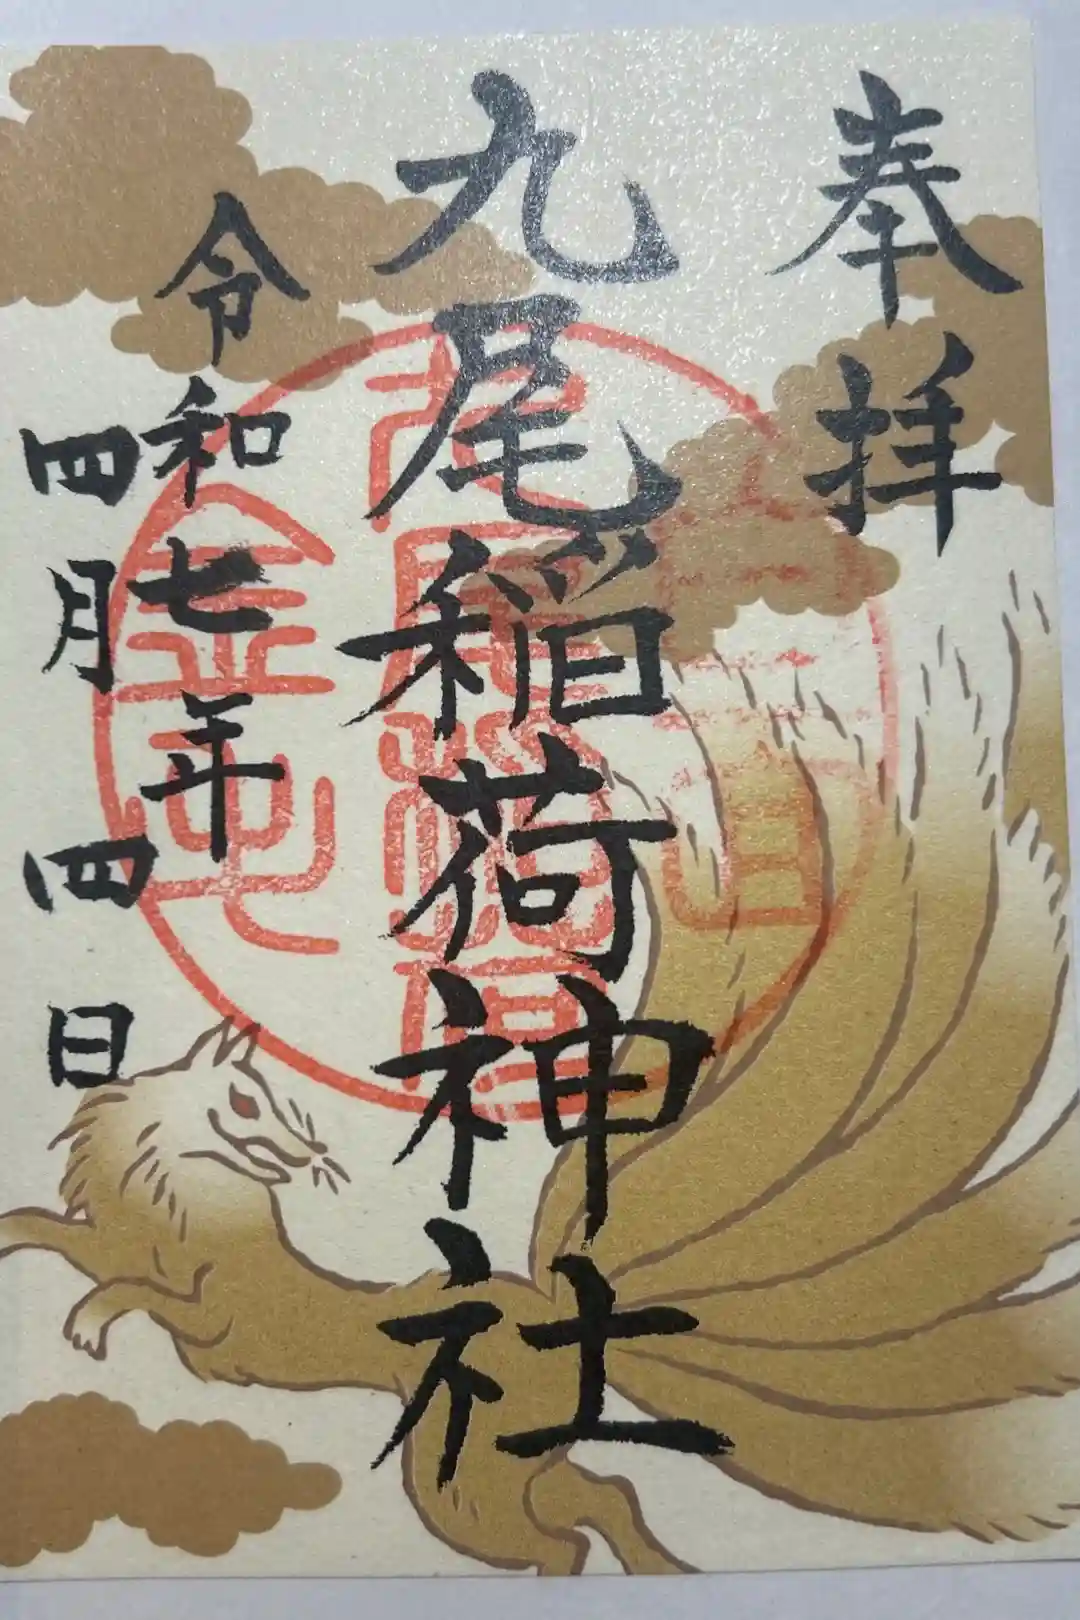 奉拝
九尾稲荷神社
令和七年
四月四日